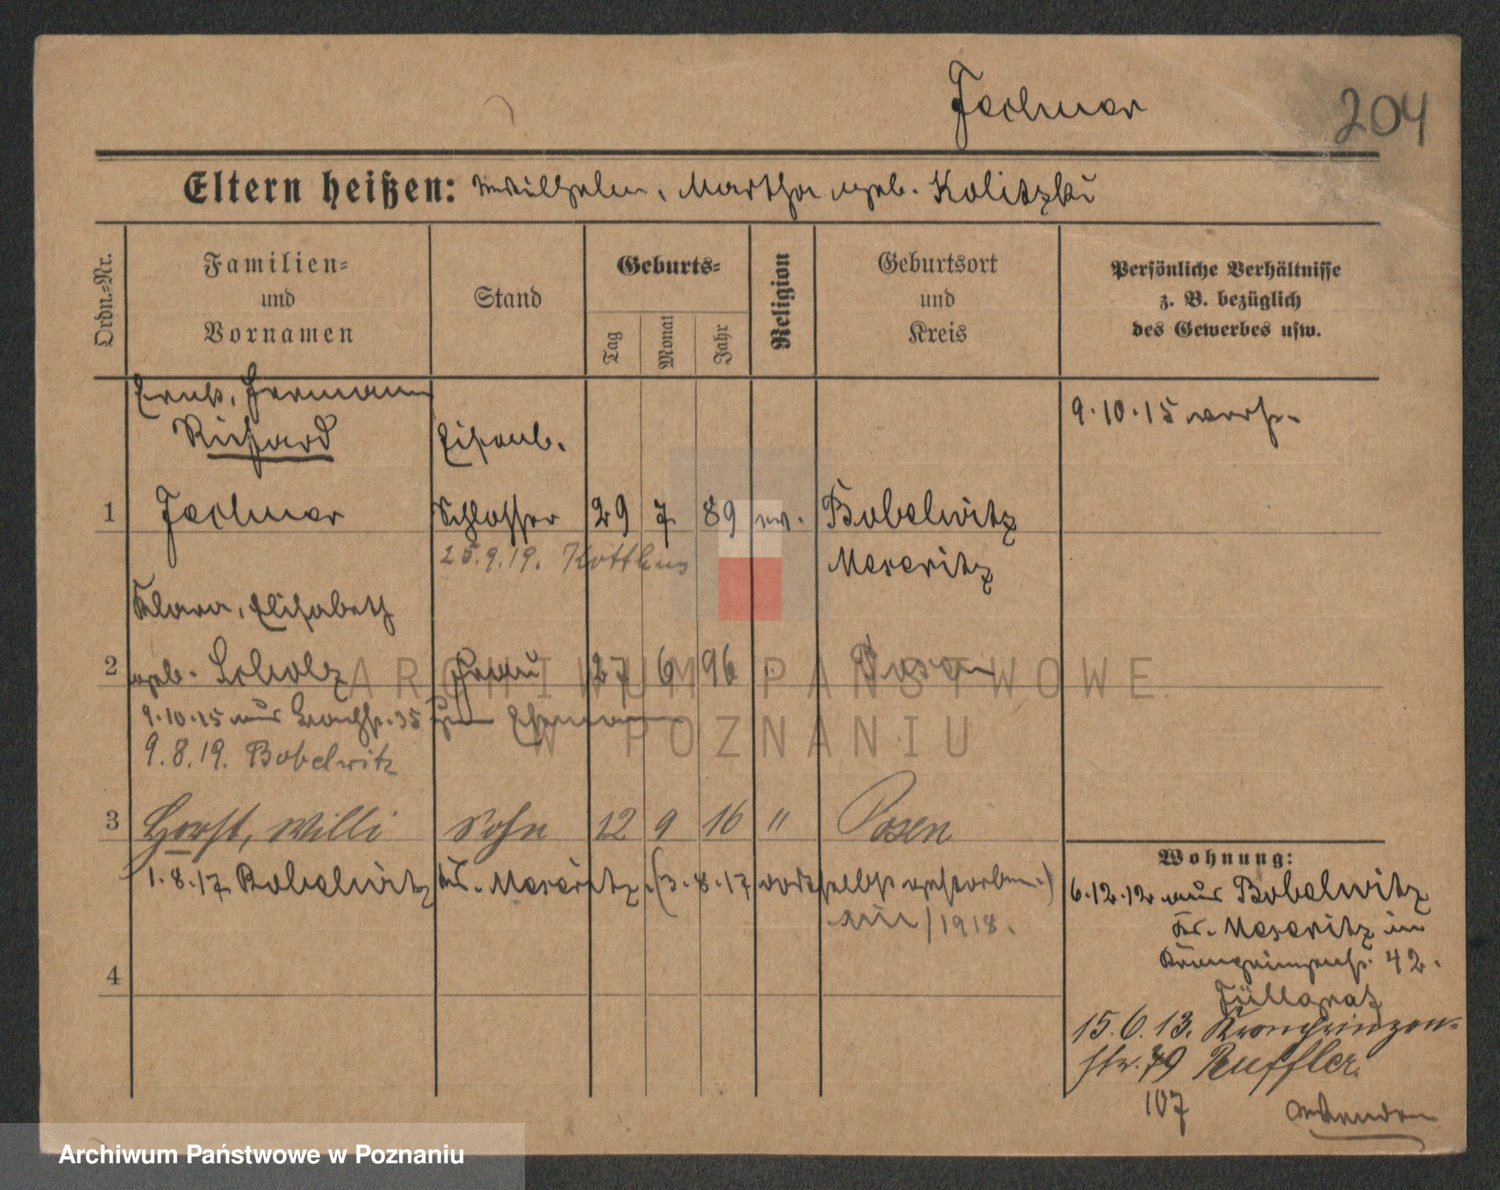 Fechner
204
Eltern heißen: Wilhelm, Martha geb. Kolitzki
Ordn.=Nr.
Familien=
und
Vornamen
Stand
Geburts=
Tag
Monat
Jahr
Religion
Geburtsort
und
Kreis
Persönliche Verhältnisse
z. B. bezüglich
des Gewerbes usw.
Ernst, Hermann
Richard
Eisenb.
9.10.15 verh.
1 Fechner Schlosser 29 7 89 ev. Bobelwitz
25.9.19. Kottbus
Meseritz
Klara, Elisabeth
2 geb. Scholz Frau 27 6 96 Posen
9.10.15 aus 35 zum Ehemann
9.8.19. Bobelwitz
3 Horst, Willi Sohn 12 9 16 " Posen
1.8.17 Bobelwitz Kr. Meseritz. (3.8.17 dortselbst gestorben.)
/1918.
4
Wohnung:
6.12.12 aus Bobelwitz
Kr. Meseritz in
Kronprinzenstr. 42.
15.6.13. Kronprinzen-
str. 79
107
ARCHIWUM PAŃSTWOWE
W POZNANIU
Archiwum Państwowe w Poznaniu